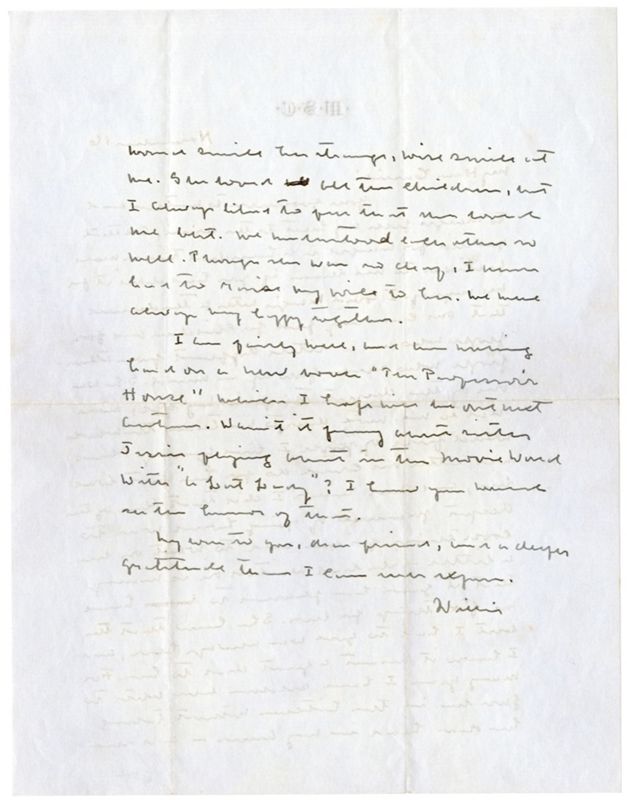 would smile her strange, wise smile at
me. She loved all the children, but
I always liked to feel that she loved
me best. We understood each other so
well. Though she was so deaf, I never
had to raise my voice to her. We were
always very happy together.
I am fairly well, and am working
hard on a new novel "The Professor's
House" which I hope will be out next
autumn. Wasn't it funny about sister
Jessie flying about in the movie world
with "a Lost Lady"? I knew you would
see the humor of that.
My love to you, dear friend, and a deeper
gratitude than I can ever express.
Willie